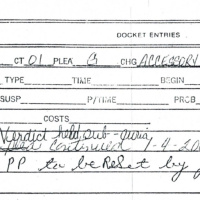 DOCKET ENTRIES
CT 01 PLEA G CHG ACCESSORY
TYPE TIME BEGIN
SUSP P/TIME PROB
COSTS
Verdict held sub-curia,
continued 1-4-20
PP to be Reset by